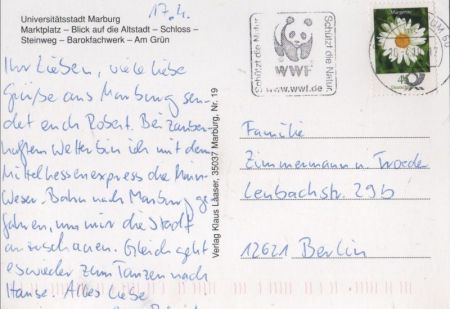 Universitätsstadt Marburg
Marktplatz – Blick auf die Altstadt – Schloss –
Steinweg – Barokfachwerk – Am Grün
17.4.
Ihr Lieben, viele liebe
Grüße aus Marburg sen-
det euch Robert. Bei zauber-
haftem Wetter bin ich mit dem
Mittelhessenexpress die Main-
Weser-Bahn nach Marburg ge-
fahren, um mir die Stadt
anzuschauen. Gleich geht
es wieder zum Tanzen nach
Hause. Alles Liebe
Verlag Klaus Laaser, 35037 Marburg, Nr. 19
Schützt die Natur
WWF
www.wwf.de
Schützt die Natur
Margerite
45
Familie
Zimmermann u. Troede
Leubachstr. 29b
12621 Berlin